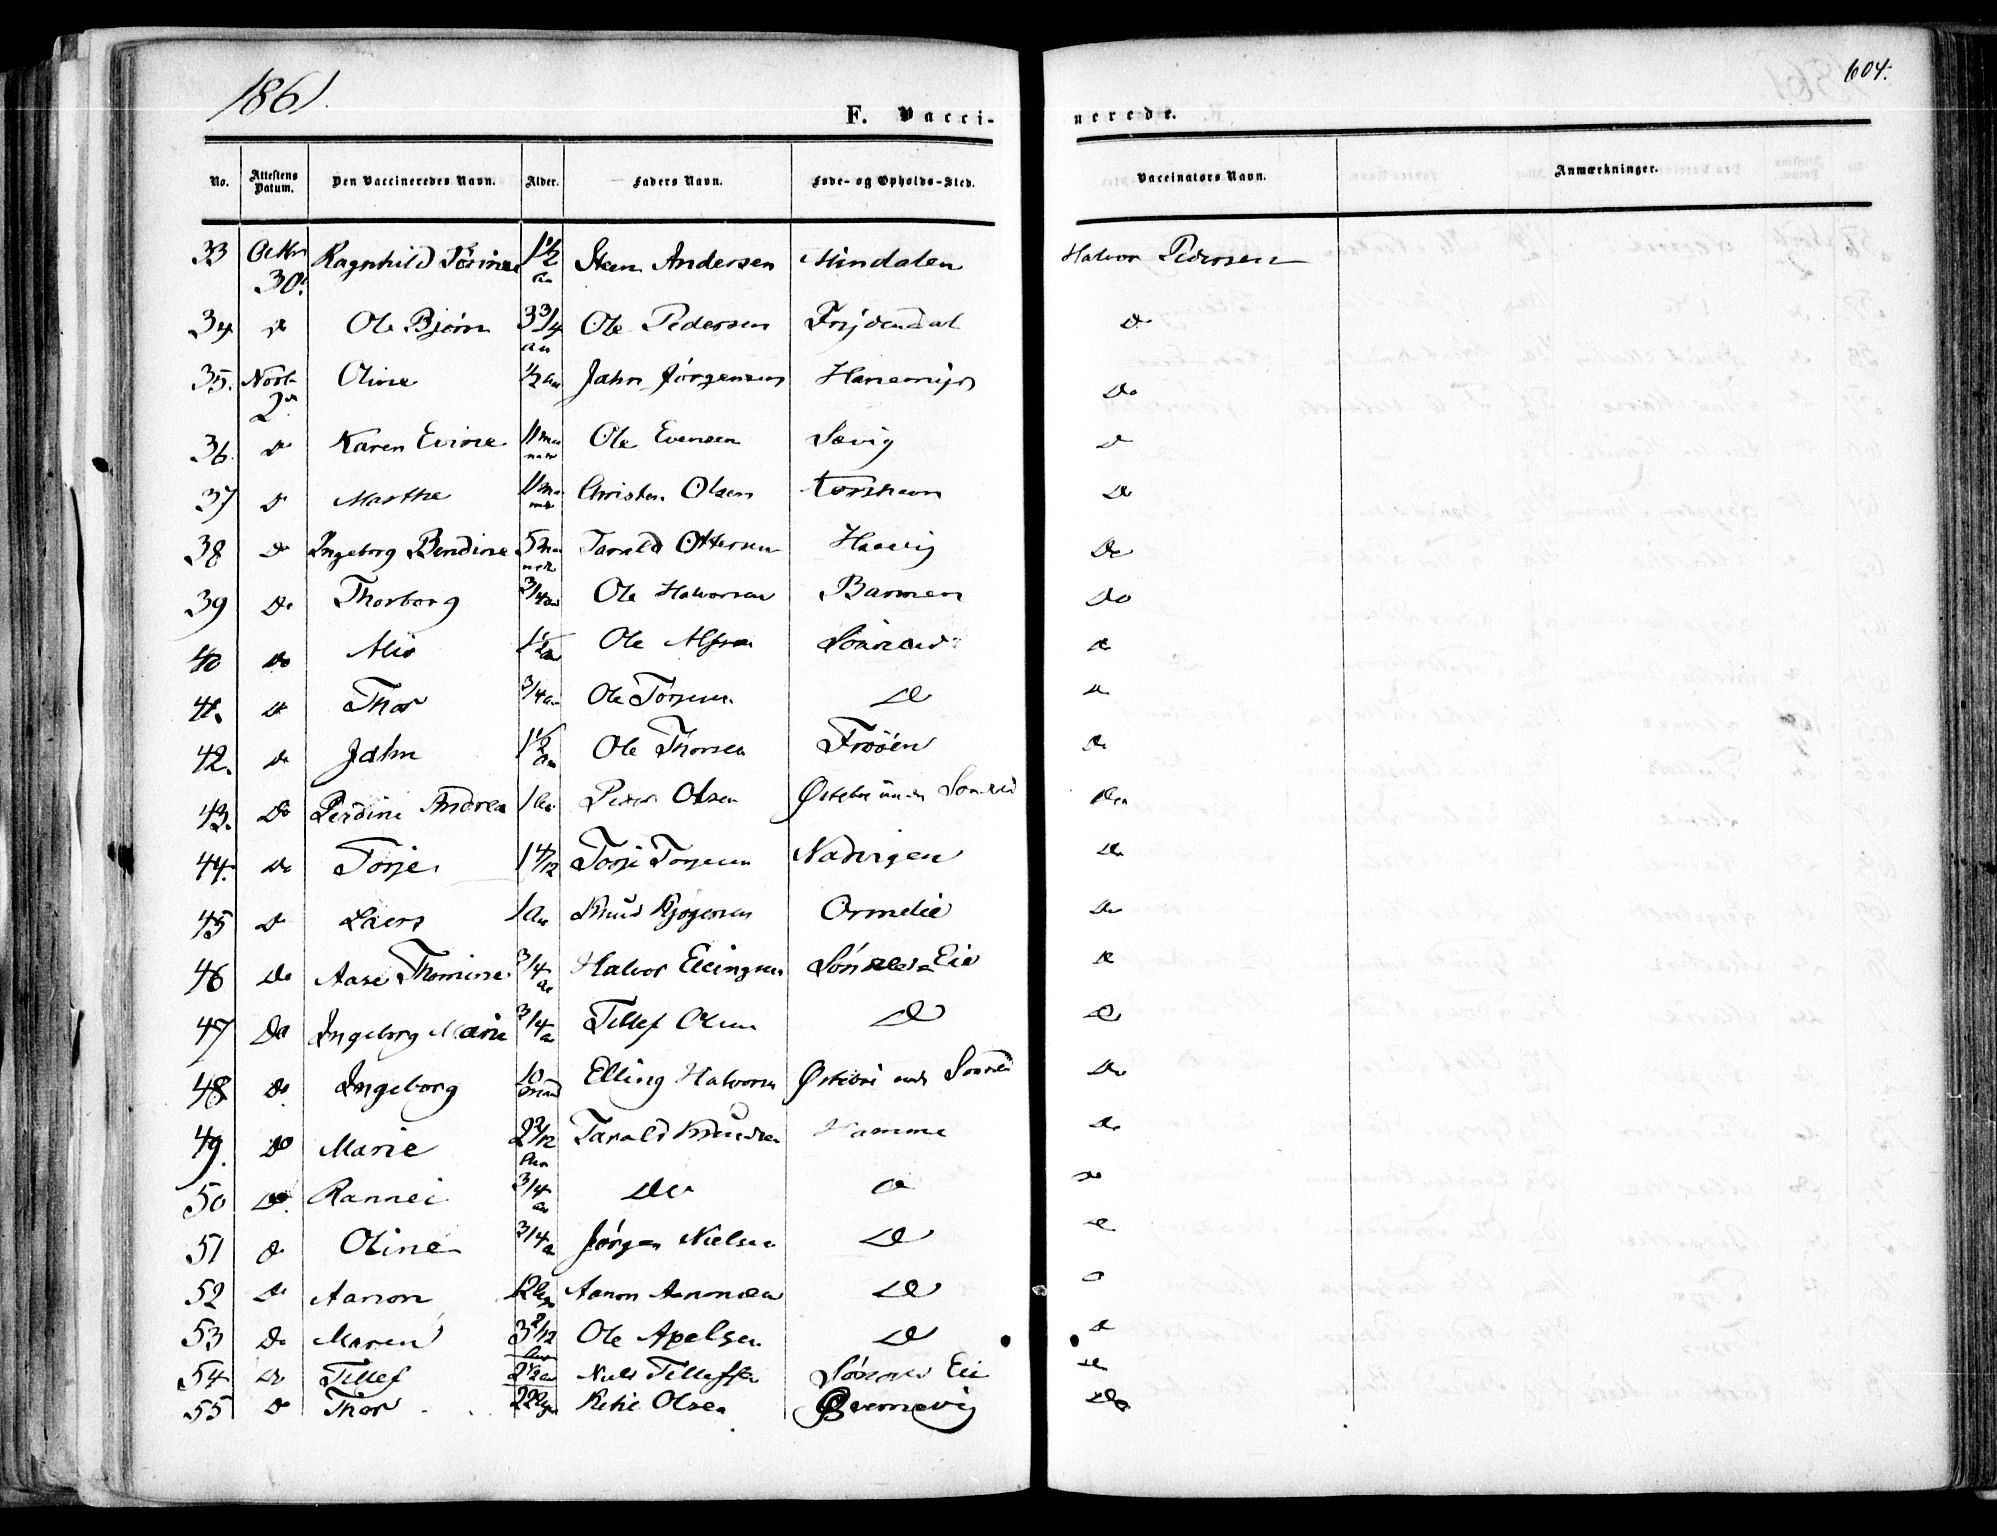 1861.
604.
F. Vacci- nerede.
No. Attestens Datum. Den Vaccineredes Navn. Alder. Faders Navn. Føde- og Opholds-Sted. Vaccinators Navn. Anmærkninger.
33 Octbr 30. Ragnhild 1 1/2 Aar Steen Andersen Mindalen Halvor Pedersen
34 Do Ole Bjørn 3 3/4 Aar Ole Pedersen Frydendal Do
35. Novbr 2den Oline 1/2 Aar Jahn Jørgensen Hanemyr Do
36. Do Karen Evine 11 Maaneder Ole Evensen Sævig Do
37 Do Marthe 11 Christen Olsen Torsheim Do
38 Do Ingeborg Bendine 5 Maaneder Tarald Ottersen Haavig Do
39 Do Thorborg 3/4 Aar Ole Halvorsen Barmen Do
40 Do 1 1/2 Aar Ole Alfsen Søndeled Do
41. Do Thor 3/4 Aar Ole Torjusen Do Do
42. Do Jahn 1 1/2 Aar Ole Thorsen Frøøen Do
43. Do Perdine Andrea 1 Aar Peder Olsen Østebø under Sønderled Do
44. Do Torje 1 4/12 Torje Torjesen Do
45 Do Laers 1 Aar Knud Ormelie Do
46 Do Aase Thomine 3/4 Aar Halvor Ellingsen Eie Do
47 Do Ingeborg Marie 3/4 Aar Tellef Olsen Do Do
48 Do Ingeborg 10 Maaned Elling Halvorsen Østebø under Do
49. Do Marie 2 2/12 Aar Tarald Knudsen Hamme Do
50 Do. Rannei 3/4 Aar Do Do Do
51 Do Oline 3/4 Aar Jørgen Nielsen Do Do
52 Do Aanon 12 Uger Aanon Aanonsen Do Do
53 Do Maren 3 2/12 Aar Ole Apelsen Do Do
54 Do Tellef 2 1/2 Aar Niels Tellefsen Eie Do
55 Do Thor 22 Uger Olsen Do